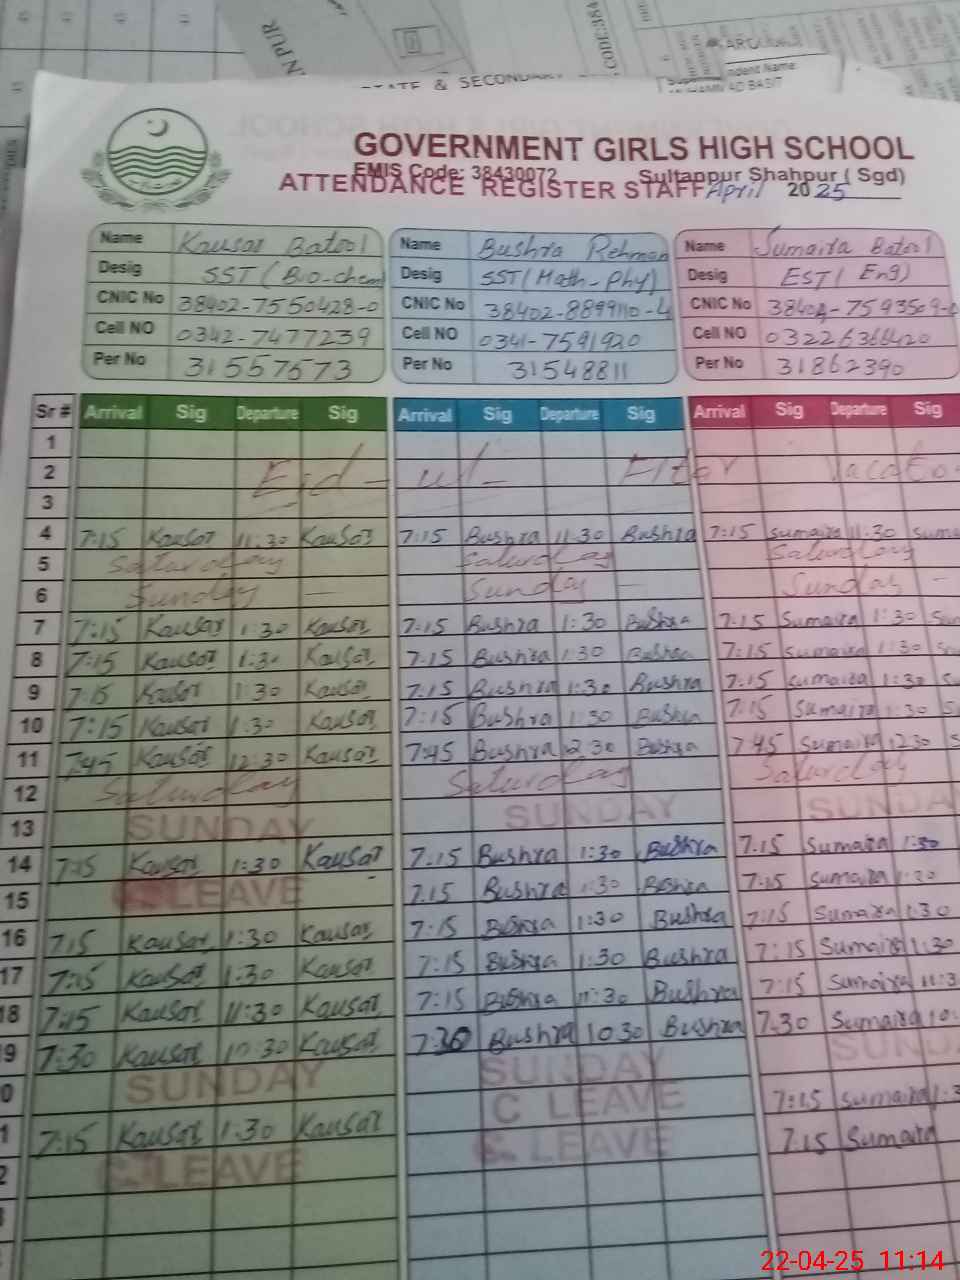 CODE:384
& SECONDARY
dent Name
GOVERNMENT GIRLS HIGH SCHOOL
EMIS Code: 38430072 Sultanpur Shahpur ( Sgd)
ATTENDANCE REGISTER STAFF April 2025
Name Kausar Batool Name Bushra Rehman Name Sumaira Batool
Desig SST (Bio-chem) Desig SST(Math-Phy) Desig EST( Eng)
CNIC No 38402-7550428-0 CNIC No 38402-8899110-4 CNIC No
Cell NO 0342-7477239 Cell NO 0341-7591920 Cell NO 03226366420
Per No 31557573 Per No 31548811 Per No 31862390
Sr # Arrival Sig Departure Sig Arrival Sig Departure Sig Arrival Sig Departure Sig
1
2 Eid-ul- Fiter Vacatio
3
4 7:15 Kausar 11:30 Kausar 7:15 Bushra 11:30 Bushra 7:15 Sumaira 11:30 Suma
5 Saturday Saturday Saturday
6 Sunday — Sunday — Sunday -
7 7:15 Kausar 1:30 Kausar 7:15 Bushra 1:30 Bushra 7:15 Sumaira 1:30 Sum
8 7:15 Kausar 1:30 Kausar 7:15 Bushra 1:30 Bushra 7:15 Sumaira 1:30
9 7:15 Kausar 1:30 Kausar 7:15 Bushra 1:30 Bushra 7:15 Sumaira 1:30 S
10 7:15 Kausar 1:30 Kausar 7:15 Bushra 1:30 Bushra 7:15 Sumaira 1:30 S
11 7:45 Kausar 12:30 Kausar 7:45 Bushra 12:30 Bushra 7:45 Sumaira 12:30 S
12 Saturday Saturday Saturday
13 SUNDAY SUNDAY SUNDA
14 7:15 Kausar 1:30 Kausar 7.15 Bushra 1:30 Bushra 7:15 Sumaira 1:30
15 LEAVE 7.15 Bushra 1:30 Bushra 7:15 Sumaira 1:30
16 7:15 Kausar 1:30 Kausar 7:15 Bushra 1:30 Bushra 7:15 Sumaira 1:30
17 7:15 Kausar 1:30 Kausar 7:15 Bushra 1:30 Bushra 7:15 Sumaira 1:30
18 7:15 Kausar 11:30 Kausar 7:15 Bushra 11:30 Bushra 7:15 Sumaira 11:3
9 7:30 Kausar 10:30 Kausar 7:30 Bushra 10:30 Bushra 7.30 Sumaira 10:
0 SUNDAY SUNDAY SUNDA
1 7:15 Kausar 1:30 Kausar C LEAVE 7:15 Sumaira 1:3
2 LEAVE LEAVE 7.15 Sumaira
22-04-25 11:14